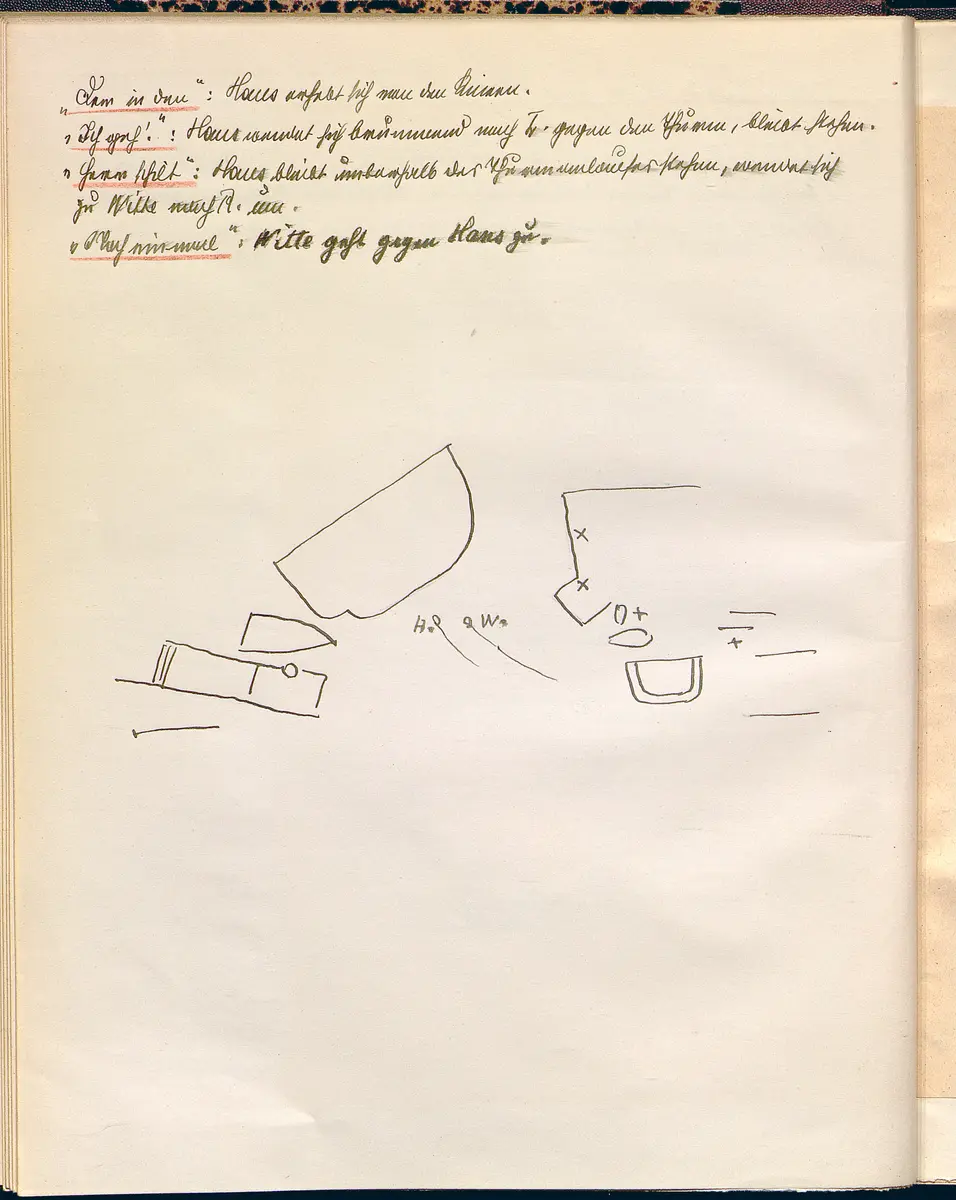 „Dem in den“: Hans erhebt sich von den Knieen.
„Ich geh!“: Hans wendet sich brummend nach L. gegen den Thurm, bleibt stehen.
„Herr hilt“: Hans bleibt unterhalb des Thurmanlaufes stehen, wendet sich
zu Witte nach R. um.
„Noch einmal“: Witte geht gegen Hans zu.
H. W.